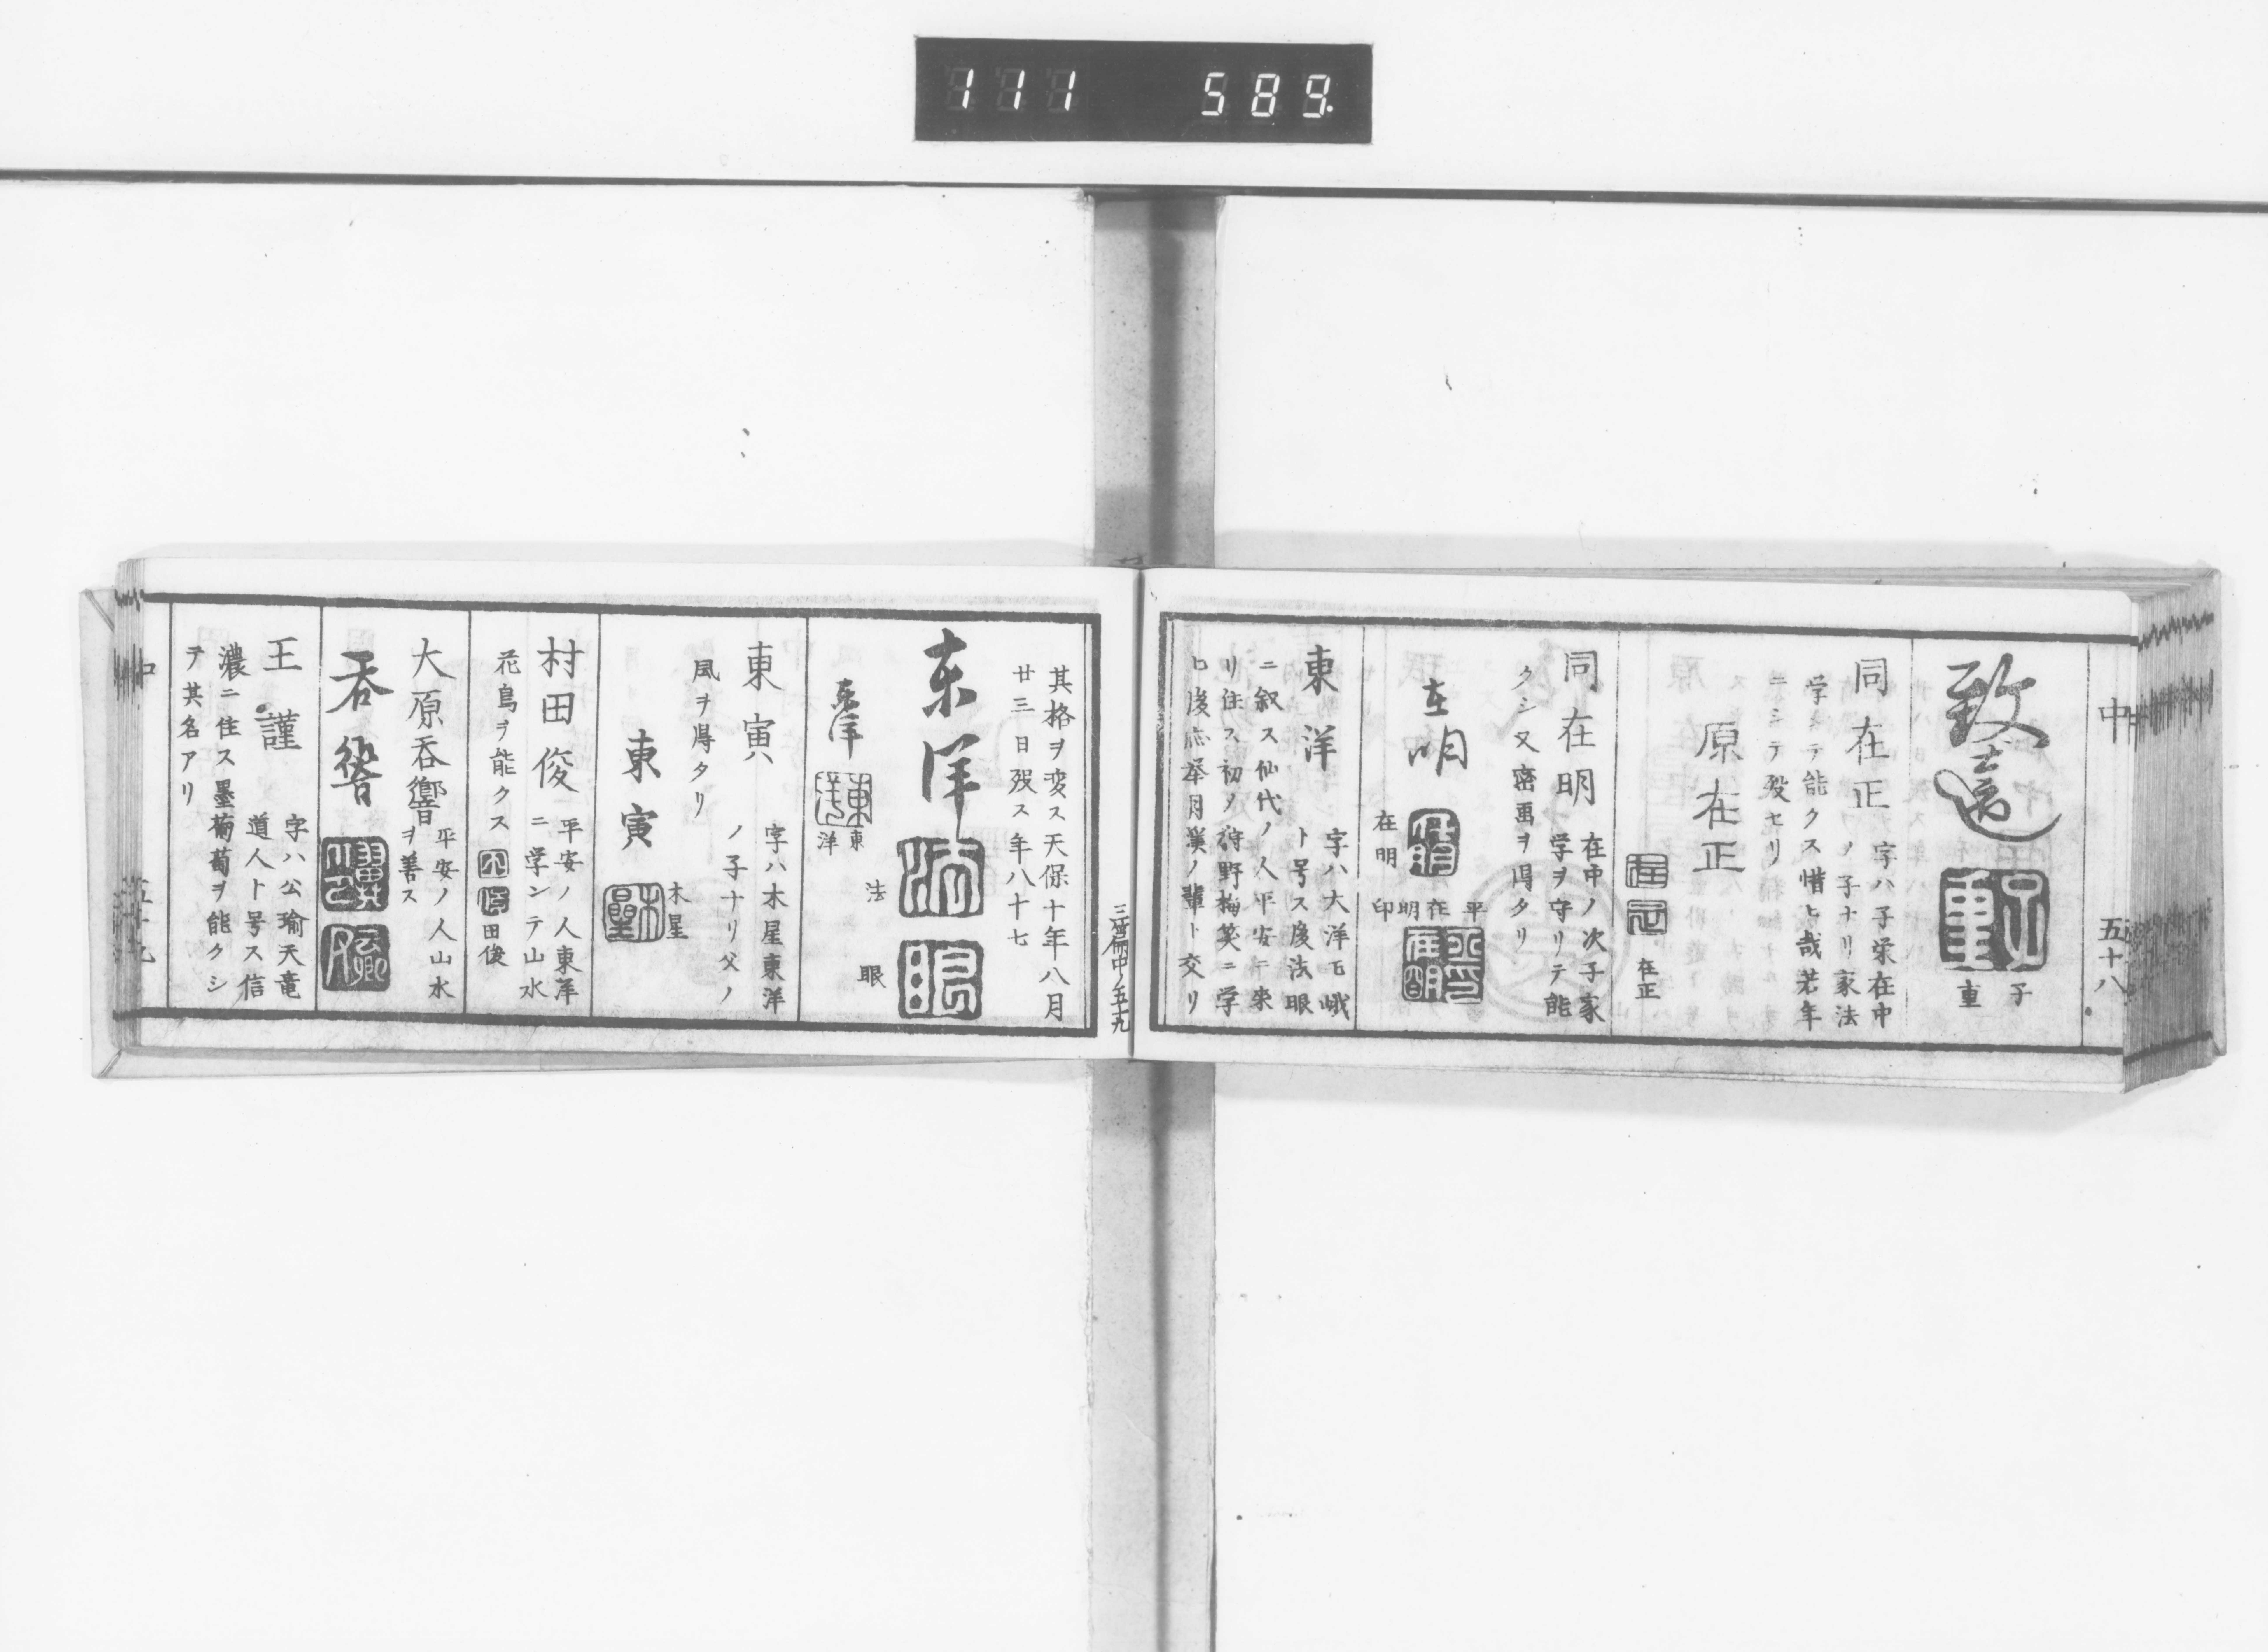 111 589.
中
五十八
致遠
子重
同在正
字ハ子栄在中
ノ子ナリ家法
学シテ能クス惜ヒ哉若年
ニシテ殁セリ
原在正
在正
同在明
在中ノ次子家
学ヲ守リテ能
クシ又密画ヲ得タリ
在明
在明
平在明印
東洋
字ハ大洋玉峨
ト号ス後法眼
ニ叙ス仙代ノ人平安ニ来
リ住ス初メ狩野梅笑ニ学
ヒ後応挙月溪ノ輩ト交リ
三番中ノ五十九
其格ヲ変ス天保十年八月
廿三日殁ス年八十七
东洋
法眼
东洋
東洋
東寅
字ハ木星東洋
ノ子ナリ父ノ
風ヲ得タリ
東寅
木星
村田俊
平安ノ人東洋
ニ学ンテ山水
花鳥ヲ能クス
田俊
大原呑響
平安ノ人山水
ヲ善ス
呑響
王謹
字ハ公瑜天竜
道人ト号ス信
濃ニ住ス墨葡萄ヲ能クシ
テ其名アリ
中
五十九